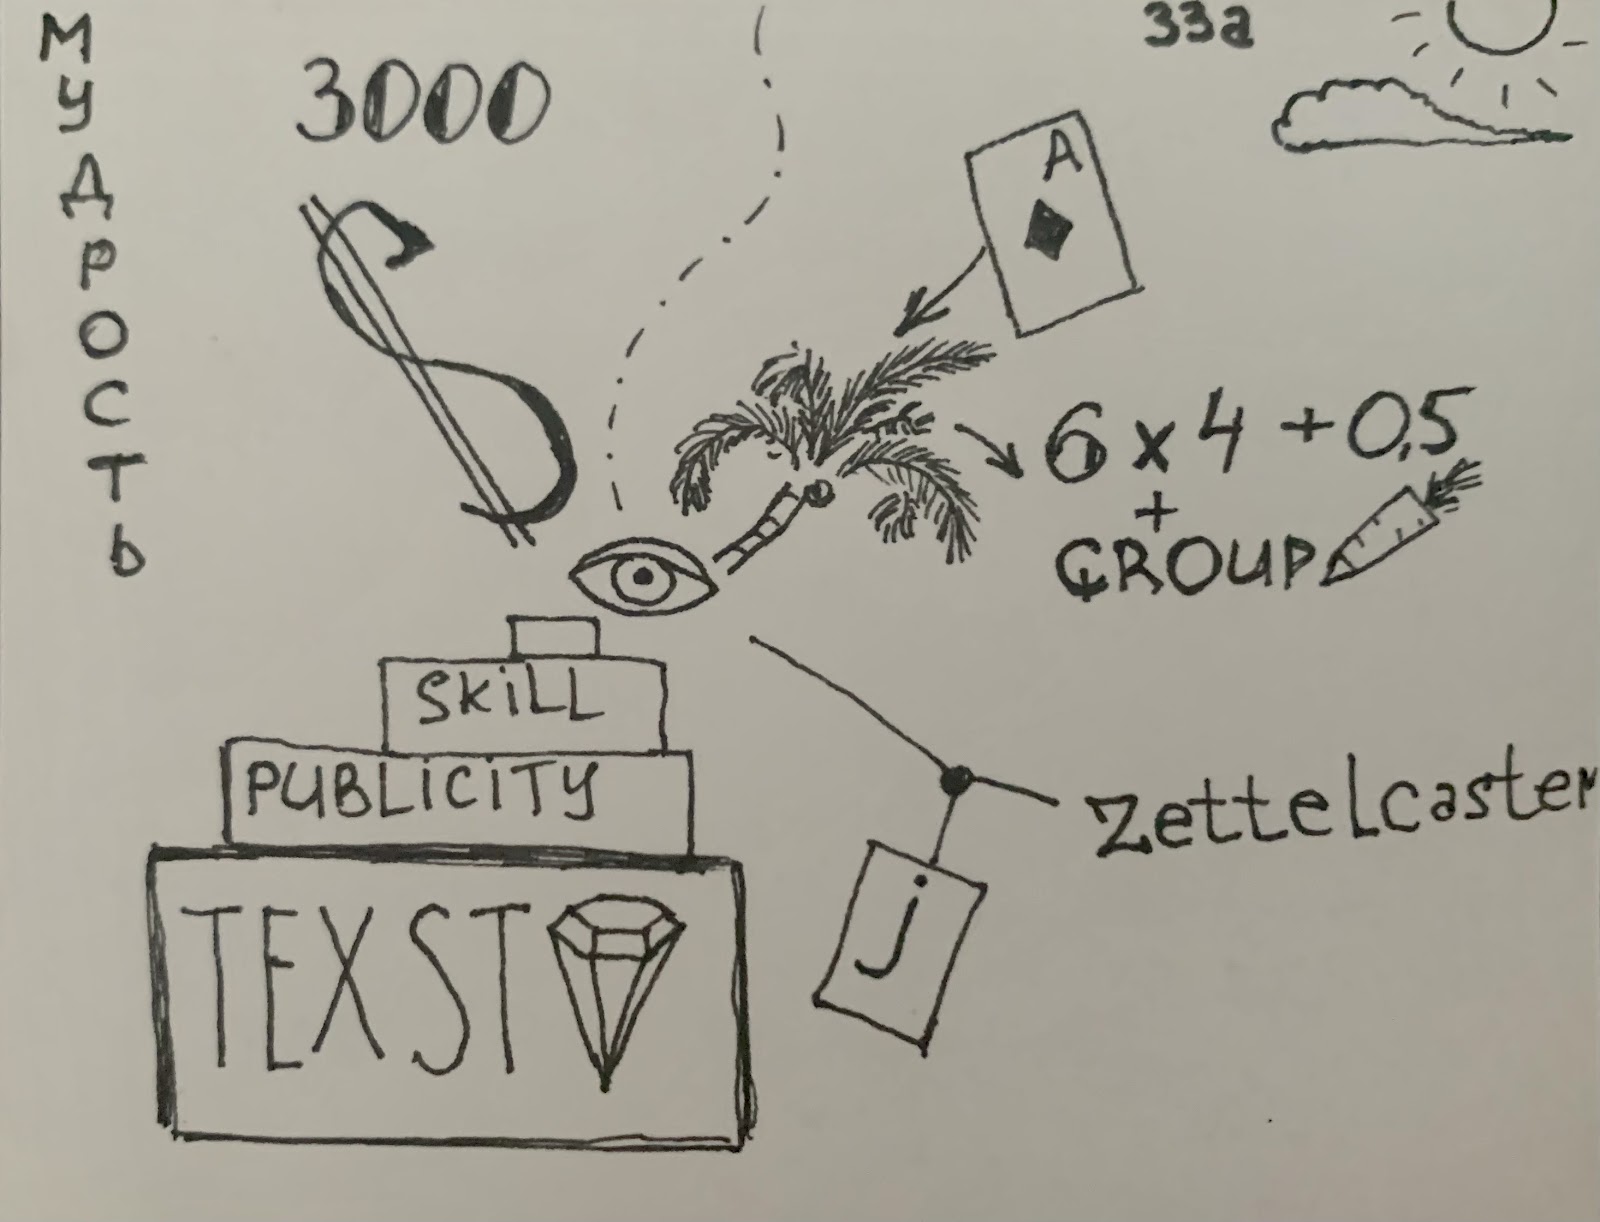 МУДРОСТЬ
3000
33a
A
$
6 x 4 + 0,5
+
GROUP
SKiLL
PUBLiCiTY
Zettelcaster
TEXST
j